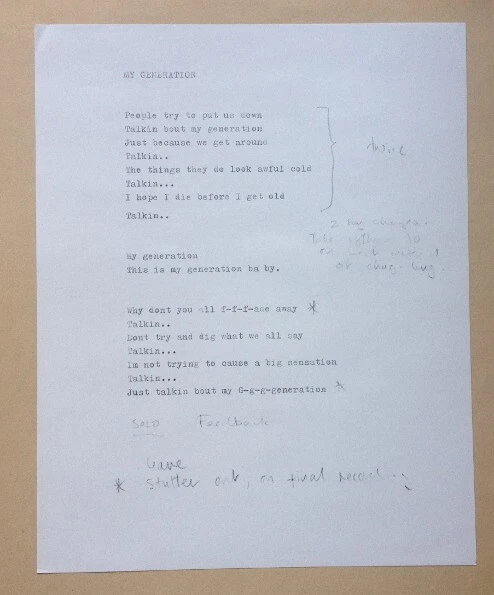 MY GENERATION
People try to put us down
Talkin bout my generation
Just because we get around
Talkin..
The things they do look awful cold
Talkin...
I hope I die before I get old
Talkin..
twice
2 key changes.
My generation
This is my generation ba by.
Why dont you all f-f-f-ade away *
Talkin..
Dont try and dig what we all say
Talkin...
Im not trying to cause a big sensation
Talkin...
Just talkin bout my G-g-g-generation *
SOLO Feedback
leave
* stutter out, on final record